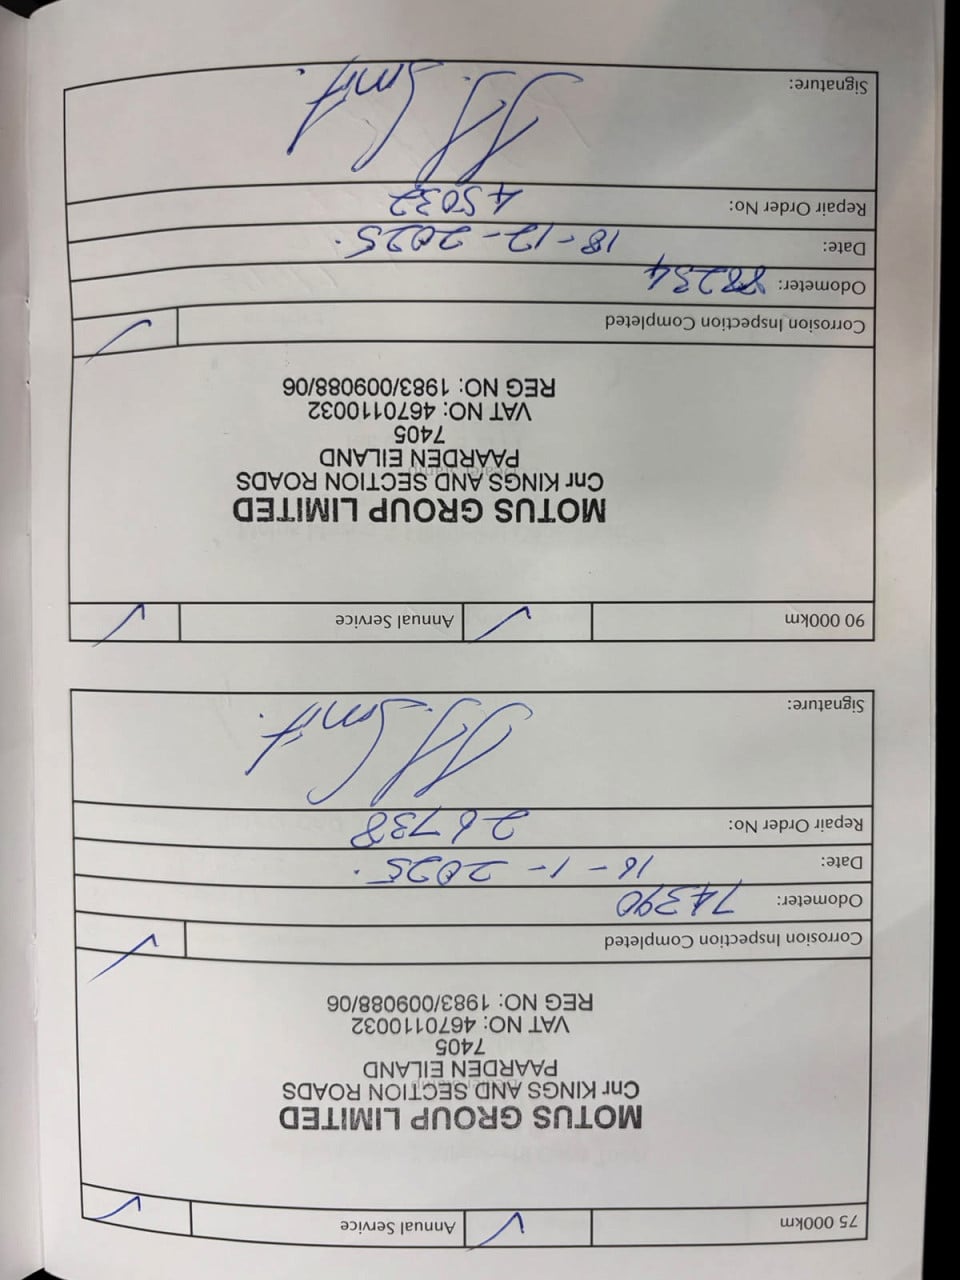 75 000km ✓ Annual Service ✓
MOTUS GROUP LIMITED
Cnr KINGS AND SECTION ROADS
PAARDEN EILAND
7405
VAT NO: 4670110032
REG NO: 1983/009088/06
Corrosion Inspection Completed ✓
Odometer: 74390
Date: 16-1-2025.
Repair Order No: 26738
Signature: JJ. Smit.
90 000km ✓ Annual Service ✓
MOTUS GROUP LIMITED
Cnr KINGS AND SECTION ROADS
PAARDEN EILAND
7405
VAT NO: 4670110032
REG NO: 1983/009088/06
Corrosion Inspection Completed ✓
Odometer: 88234
Date: 18-12-2025.
Repair Order No: 45032
Signature: JJ. Smit.